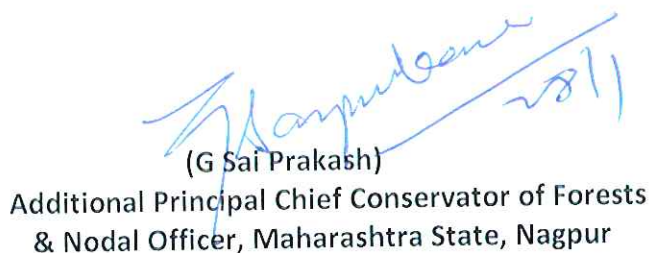 (G Sai Prakash)
Additional Principal Chief Conservator of Forests
& Nodal Officer, Maharashtra State, Nagpur